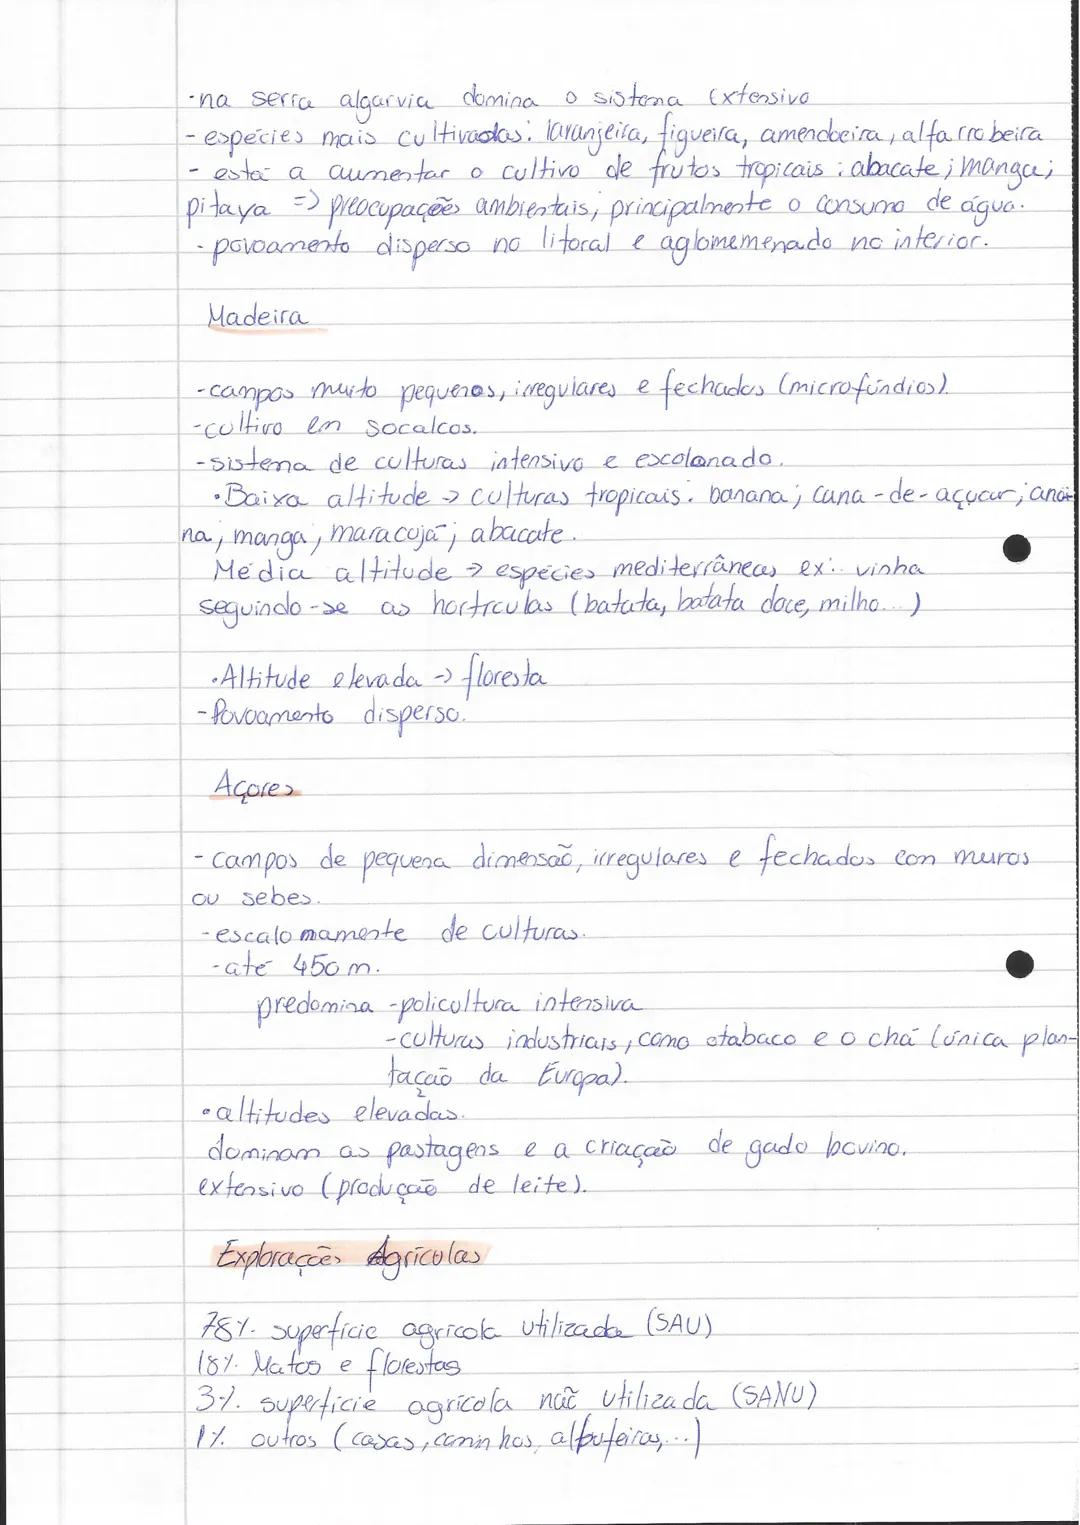 ·na serra algarvia domina o sistema extensivo
- espécies mais cultivadas: laranjeira, figueira, amendoeira, alfarrobeira
- está a aumentar o cultivo de frutos tropicais: abacate; manga;
pitaya => preocupações ambientais, principalmente o consumo de água.
- povoamento disperso no litoral e aglomemenado no interior.
Madeira
-campos muito pequenos, irregulares e fechados (microfúndios).
-cultivo em socalcos.
-sistema de culturas intensivo e escolonado.
·Baixa altitude -> culturas tropicais: banana; cana-de-açucar; ano-
na; manga; maracujá; abacate.
Média altitude -> espécies mediterrâneas ex: vinha
seguindo-se as hortículas (batata, batata doce, milho...)
·Altitude elevada -> floresta
-Povoamento disperso.
Açores
- campos de pequena dimensão, irregulares e fechados com muros
ou sebes.
-escalomamente de culturas.
-até 450m.
predomina -policultura intensiva
-culturas industriais, como otabaco e o chá (única plan-
tação da Europa).
·altitudes elevadas.
dominam as pastagens e a criação de gado bovino.
extensivo (produção de leite).
Explorações Agrícolas
78%. superfície agrícola utilizada (SAU)
18%. Matos e florestas
3%. superfície agrícola não utilizada (SANU)
1%. outros (casas, caminhos, albufeiras,...)